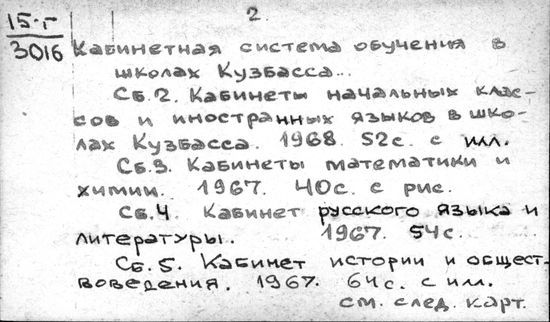 2.
15-г
3016
Кабинетная система обучения в
школах Кузбасса...
Сб.2. Кабинеты начальных клас-
сов и иностранных языков в шко-
лах Кузбасса. 1968. 52с. с илл.
Сб.3. Кабинеты математики и
химии. 1967. 40с. с рис.
Сб.4. Кабинет русского языка и
литературы. 1967. 54с.
Сб.5. Кабинет истории и общест-
воведения. 1967. 64с. с ил.
см. след. карт.